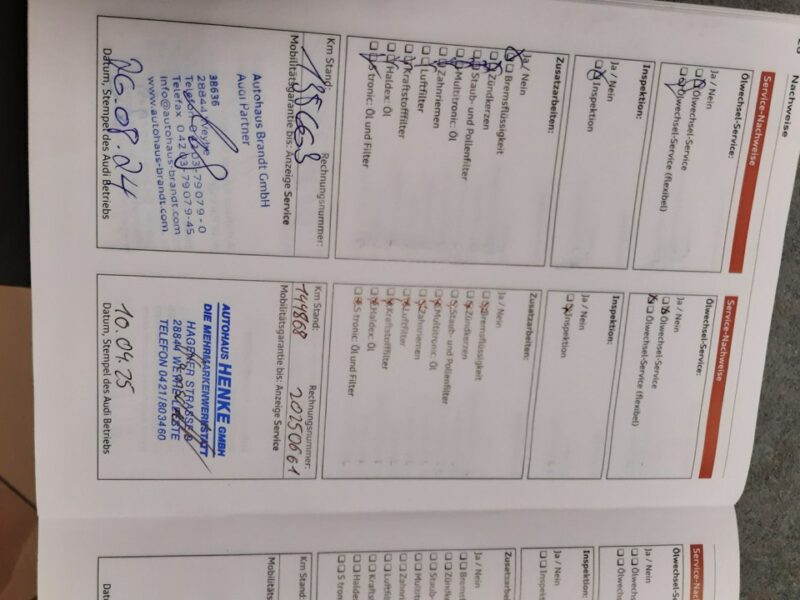 Nachweise
Service-Nachweise
Ölwechsel-Service:
Ja / Nein
Ölwechsel-Service
Ölwechsel-Service (flexibel)
Inspektion:
Ja / Nein
Inspektion
Zusatzarbeiten:
Ja / Nein
Bremsflüssigkeit
Zündkerzen
Staub- und Pollenfilter
Multitronic: Öl
Zahnriemen
Luftfilter
Kraftstofffilter
Haldex: Öl
S tronic: Öl und Filter
Km Stand: Rechnungsnummer:
Mobilitätsgarantie bis: Anzeige Service
Autohaus Brandt GmbH
Audi Partner
38636
28844 Weyhe
Telefon 04203-79079-0
Telefax 04203-79079-45
info@autohaus-brandt.com
www.autohaus-brandt.com
26.08.24
Datum, Stempel des Audi Betriebs
Service-Nachweise
Ölwechsel-Service:
Ja / Nein
Ölwechsel-Service
Ölwechsel-Service (flexibel)
Inspektion:
Ja / Nein
Inspektion
Zusatzarbeiten:
Ja / Nein
Bremsflüssigkeit
Zündkerzen
Staub- und Pollenfilter
Multitronic: Öl
Zahnriemen
Luftfilter
Kraftstofffilter
Haldex: Öl
S tronic: Öl und Filter
Km Stand: Rechnungsnummer:
144868 20250661
Mobilitätsgarantie bis: Anzeige Service
AUTOHAUS HENKE GMBH
DIE MEHRMARKENWERKSTATT
HAGENER STRASSE
28844 WEYHE
TELEFON 0421/803460
10.04.25
Datum, Stempel des Audi Betriebs
Service-Nac
Ölwechsel-S
Ja / Nein
Ölwechs
Ölwechs
Inspektion:
Ja / Nein
Inspekt
Zusatzarbe
Ja / Nein
Brems
Zündk
Staub-
Multit
Zahnri
Luftfil
Krafts
Haldex
S tron
Km Stand:
Mobilitäts
Datu